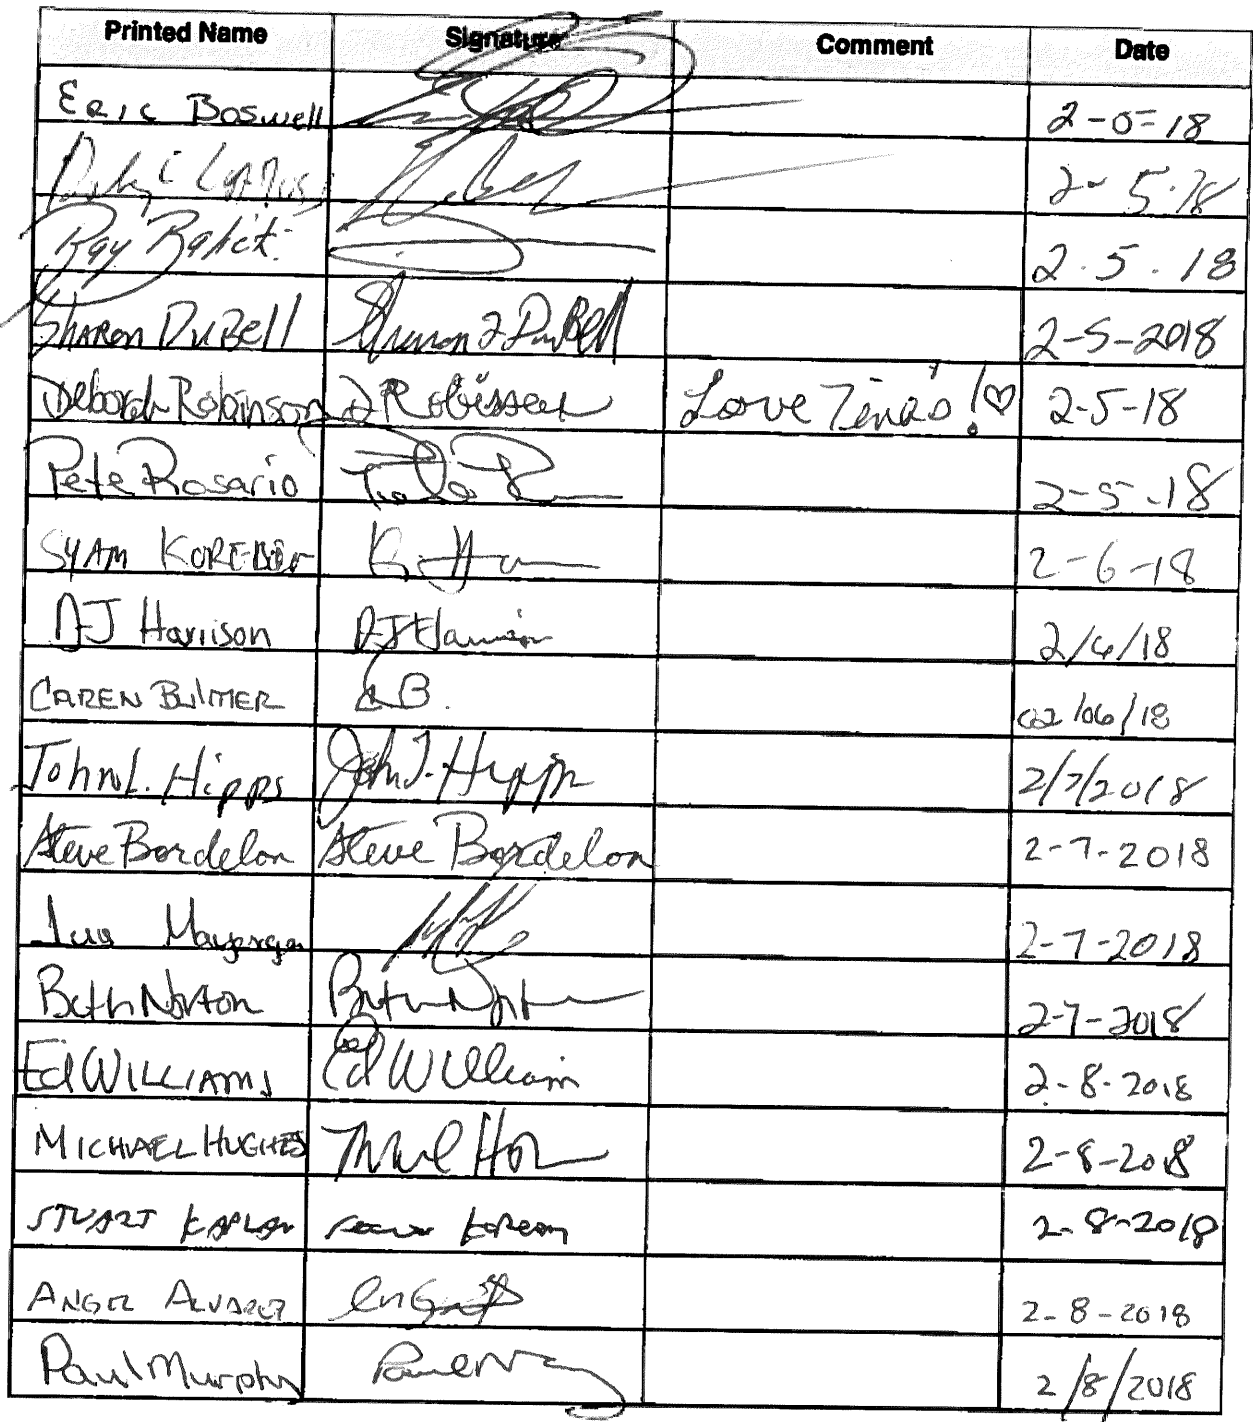 Printed Name Signature Comment Date
Eric Boswell 2-5-18
2-5-18
Ray 2.5.18
Sharon DuBell Sharon DuBell 2-5-2018
Deborah Robinson D Robinson Love Tina's! ♡ 2-5-18
Pete Rosario 2-5-18
SYAM 2-6-18
AJ Harrison AJ Harrison 2/6/18
CAREN BULMER CB. 02/06/18
John L. Hipps John L. Hipps 2/7/2018
Steve Bordelon Steve Bordelon 2-7-2018
2-7-2018
Beth Norton Beth Norton 2-7-2018
Ed WILLIAMS Ed William 2-8-2018
MICHAEL HUGHES 2-8-2018
STUART KAPLAN 2-8-2018
ANGEL ALVAREZ 2-8-2018
Paul Murphy 2/8/2018